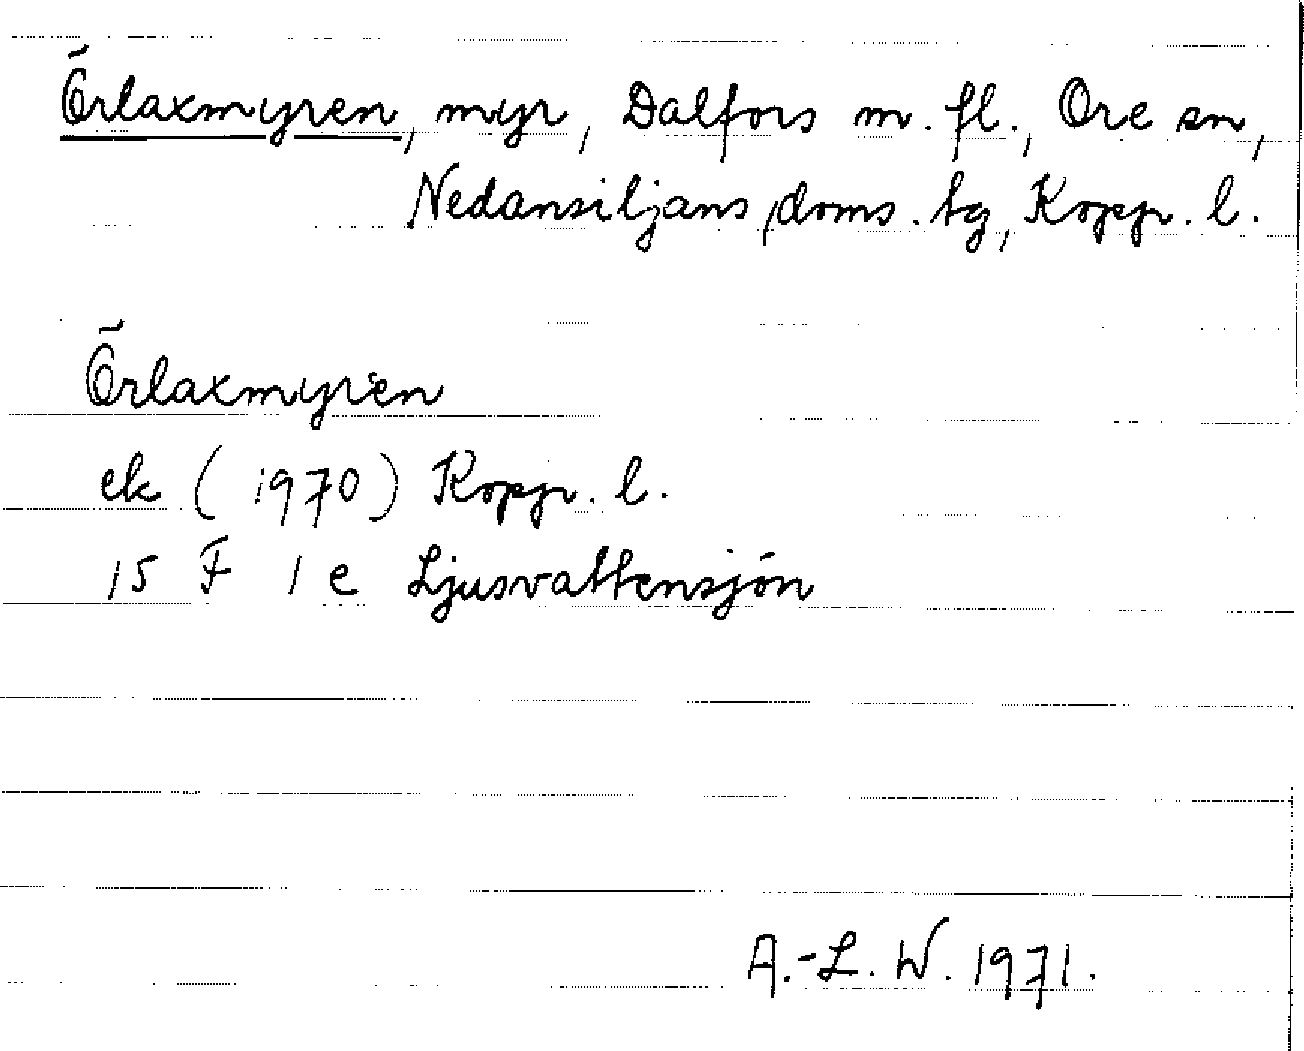 Örlaxmyren, myr, Dalfors m. fl., Ore sn,
Nedansiljans doms. tg, Kopp. l.
Örlaxmyren
ek (1970) Kopp. l.
15 F 1 e Ljusvattensjön
A.-L. W. 1971.